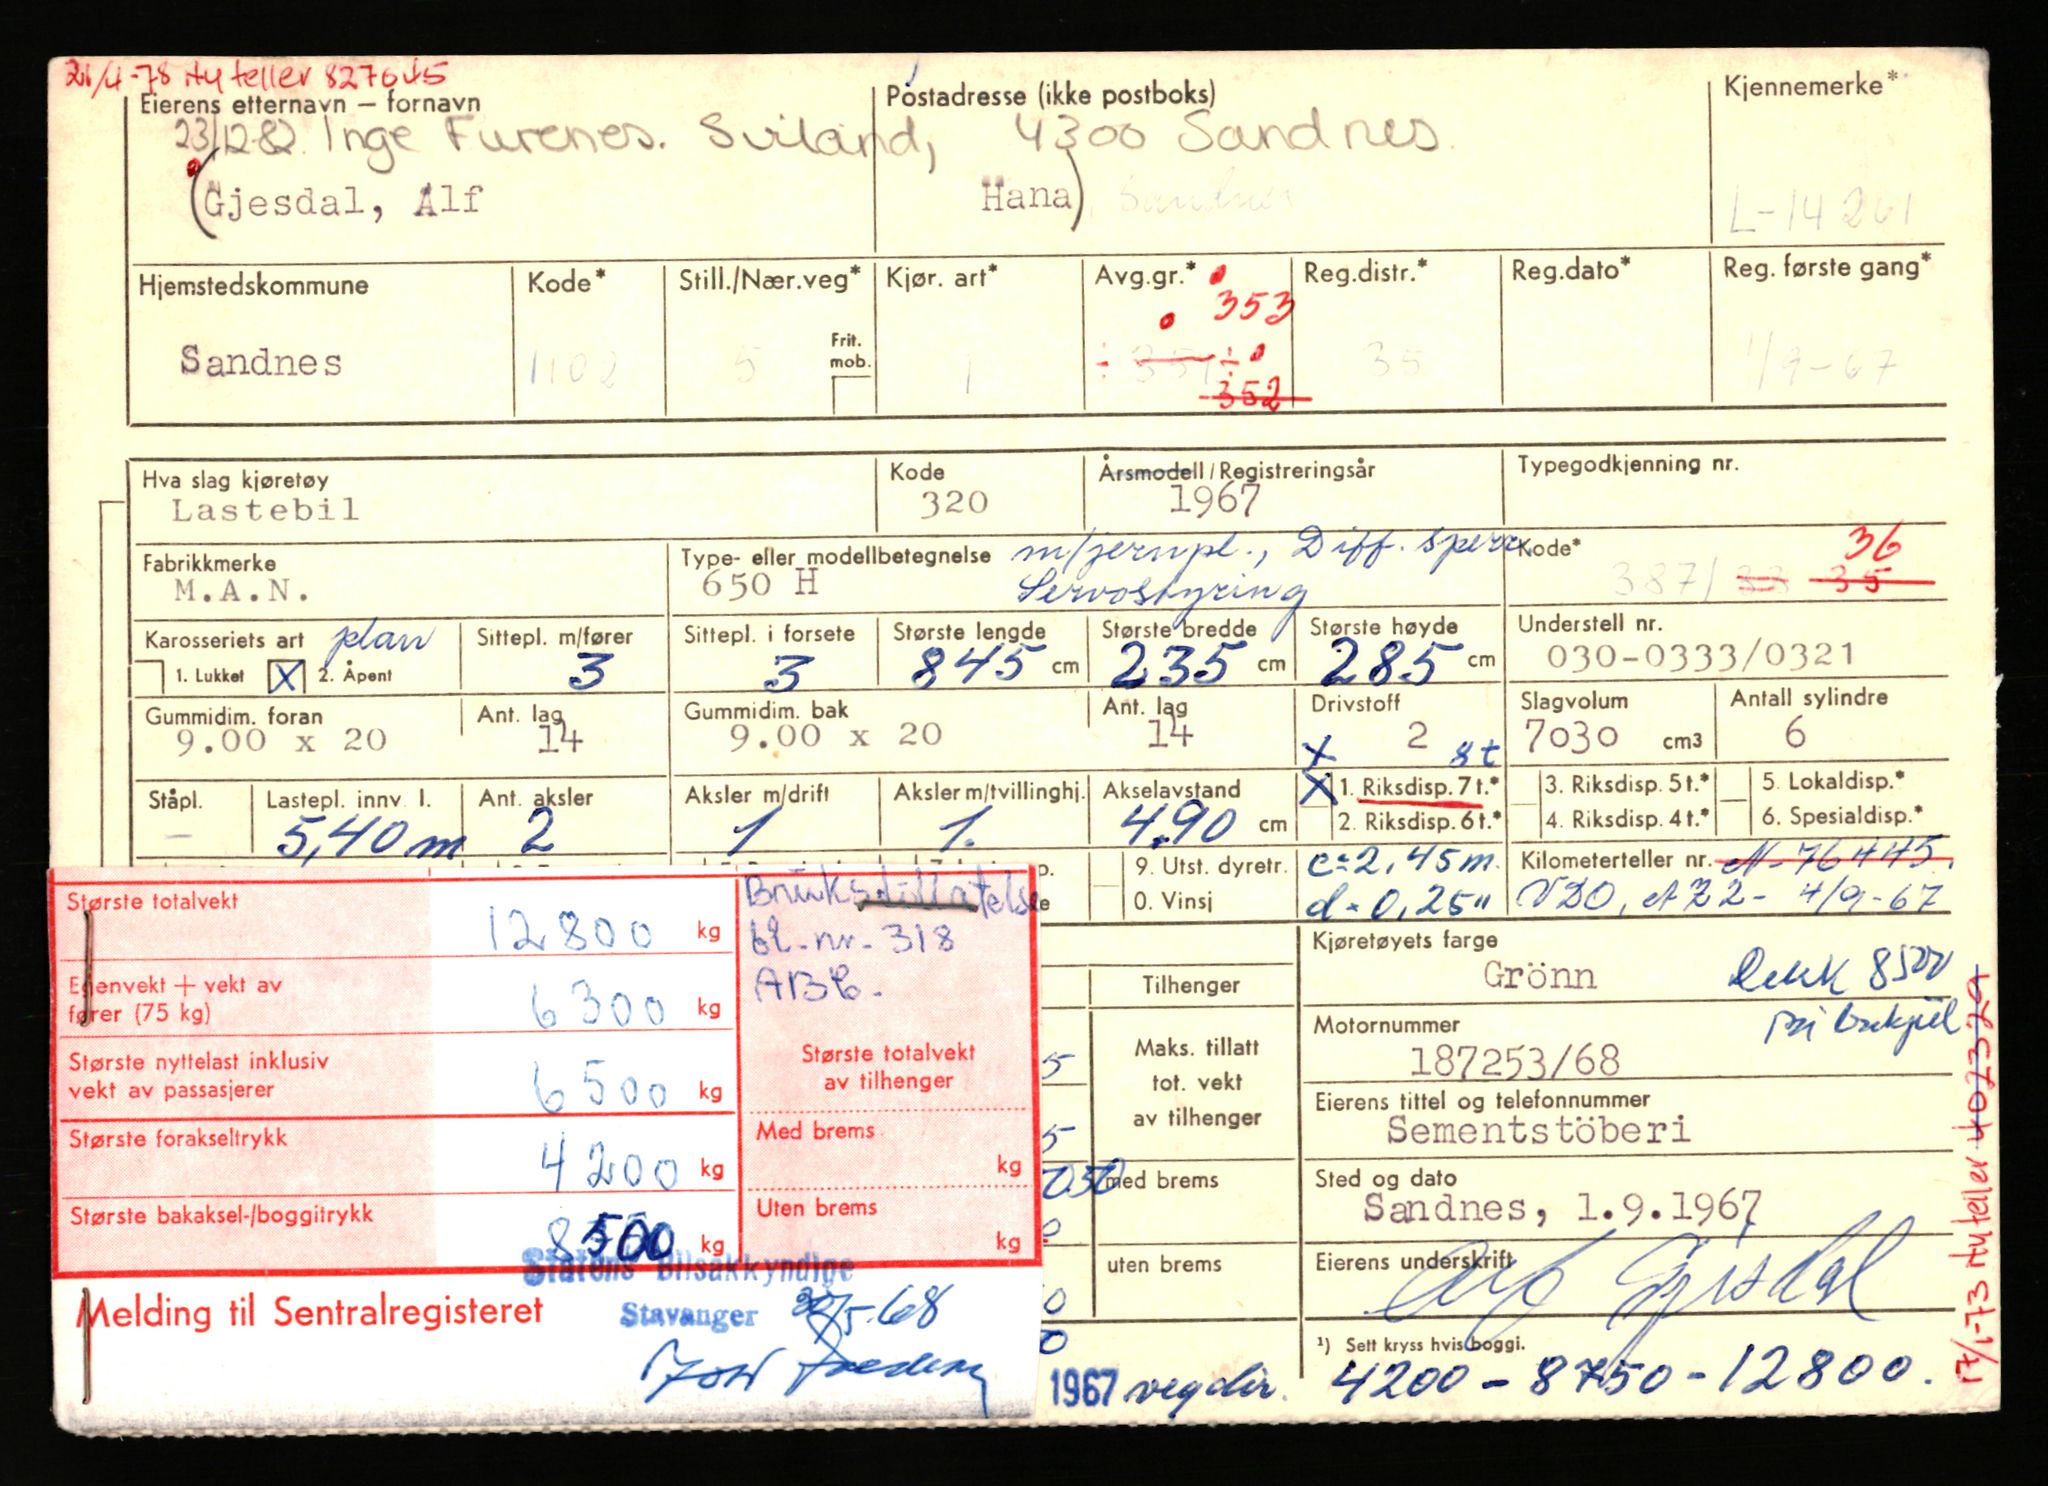 21/4-78 Ny teller 827645
Eierens etternavn – fornavn
Postadresse (ikke postboks)
Kjennemerke*
23/12-82 Inge Furenes. Sviland, 4300 Sandnes.
(Gjesdal, Alf
Hana) Sandnes
L-14261
Hjemstedskommune
Kode*
Still./Nær.veg*
Kjør. art*
Avg.gr.*
Reg.distr.*
Reg.dato*
Reg. første gang*
353
Sandnes
1102
5
Frit. mob.
1
351
352
35
1/9-67
Hva slag kjøretøy
Kode
Årsmodell/Registreringsår
Typegodkjenning nr.
Lastebil
320
1967
Fabrikkmerke
Type- eller modellbetegnelse
m/jernpl., Diff. sperr.
Kode*
36
M.A.N.
650 H
Servostyring
387/ 33 35
Karosseriets art plan
Sittepl. m/fører
Sittepl. i forsete
Største lengde
Største bredde
Største høyde
Understell nr.
1. Lukket X 2. Åpent
3
3
845 cm
235 cm
285 cm
030-0333/0321
Gummidim. foran
Ant. lag
Gummidim. bak
Ant. lag
Drivstoff
Slagvolum
Antall sylindre
9.00 x 20
14
9.00 x 20
14
2
7030 cm3
6
x 8t
Ståpl.
Lastepl. innv. l.
Ant. aksler
Aksler m/drift
Aksler m/tvillinghj.
Akselavstand
X 1. Riksdisp. 7 t.*
3. Riksdisp. 5 t.*
5. Lokaldisp.*
–
5,40 m
2
1
1.
4.90 cm
2. Riksdisp. 6 t.*
4. Riksdisp. 4 t.*
6. Spesialdisp.*
9. Utst. dyretr.
c=2,45m.
Kilometerteller nr. N-76445.
0. Vinsj
d-0,25"
VDO, AZ2- 4/9-67
Største totalvekt
12800 kg
Egenvekt + vekt av
fører (75 kg)
6300 kg
Største nyttelast inklusiv
vekt av passasjerer
6500 kg
Største forakseltrykk
4200 kg
Største bakaksel-/boggitrykk
8500 kg
Brukstillatelse
bl.-nr.-318
Største totalvekt
av tilhenger
Med brems
kg
Uten brems
kg
Melding til Sentralregisteret
Statens Bilsakkyndige
Stavanger 30/5-68
Tilhenger
Maks. tillatt
tot. vekt
av tilhenger
med brems
uten brems
Kjøretøyets farge
Grönn
Dekk 8500
på bakhjul
Motornummer
187253/68
Eierens tittel og telefonnummer
Sementstöberi
Sted og dato
Sandnes, 1.9.1967
Eierens underskrift
Alf Gjesdal
¹) Sett kryss hvis boggi.
1967 vegdir. 4200-8750-12800.
17/1-73 Ny teller 4023729